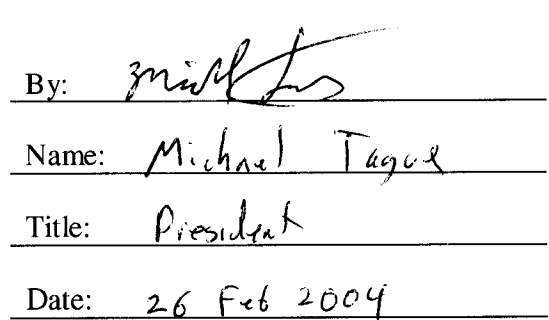 By:
Name: Michael Tague
Title: President
Date: 26 Feb 2004